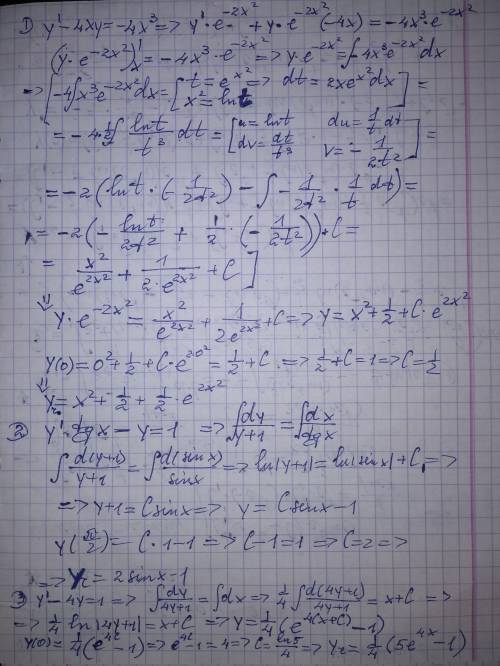 1) y' - 4xy = -4x³ => y'·e^(-2x²) + y·e^(-2x²)·(-4x) = -4x³·e^(-2x²)
(y·e^(-2x²))'ₓ = -4x³·e^(-2x²) => y·e^(-2x²) = ∫-4x³e^(-2x²)dx
=> [-4∫x³e^(-2x²)dx = [t = e^(x²) => dt = 2xe^(x²)dx
x² = ln t] =
= -4·½∫ ln t/t³ dt = [u = ln t du = 1/t dt
dv = dt/t³ v = -1/(2t²)] =
= -2(ln t·(-1/(2t²)) - ∫-1/(2t²)·1/t dt) =
= -2(-ln t/(2t²) + 1/2·(-1/(2t²))) + C =
= x²/e^(2x²) + 1/(2·e^(2x²)) + C]
⇓ y·e^(-2x²) = x²/e^(2x²) + 1/(2e^(2x²)) + C => y = x² + 1/2 + C·e^(2x²)
y(0) = 0² + 1/2 + C·e^(2·0²) = 1/2 + C. => 1/2 + C = 1 => C = 1/2
⇓ y₂ = x² + 1/2 + 1/2·e^(2x²)
2) y'·tgx - y = 1 => ∫dy/(y+1) = ∫dx/tgx
∫d(y+1)/(y+1) = ∫d(sinx)/sinx => ln|y+1| = ln|sinx| + C₁ =>
=> y+1 = Csinx => y = Csinx - 1
y(π/2) = C·1 - 1 => C - 1 = 1 => C = 2 =>
=> y₂ = 2sinx - 1
3) y' - 4y = 1 => ∫dy/(4y+1) = ∫dx => 1/4 ∫d(4y+1)/(4y+1) = x + C =>
=> 1/4 ln|4y+1| = x + C => y = 1/4(e^(4(x+C)) - 1)
y(0) = 1/4(e^(4C) - 1) => e^(4C) - 1 = 4 => C = ln5/4 => y₂ = 1/4(5e^(4x) - 1)